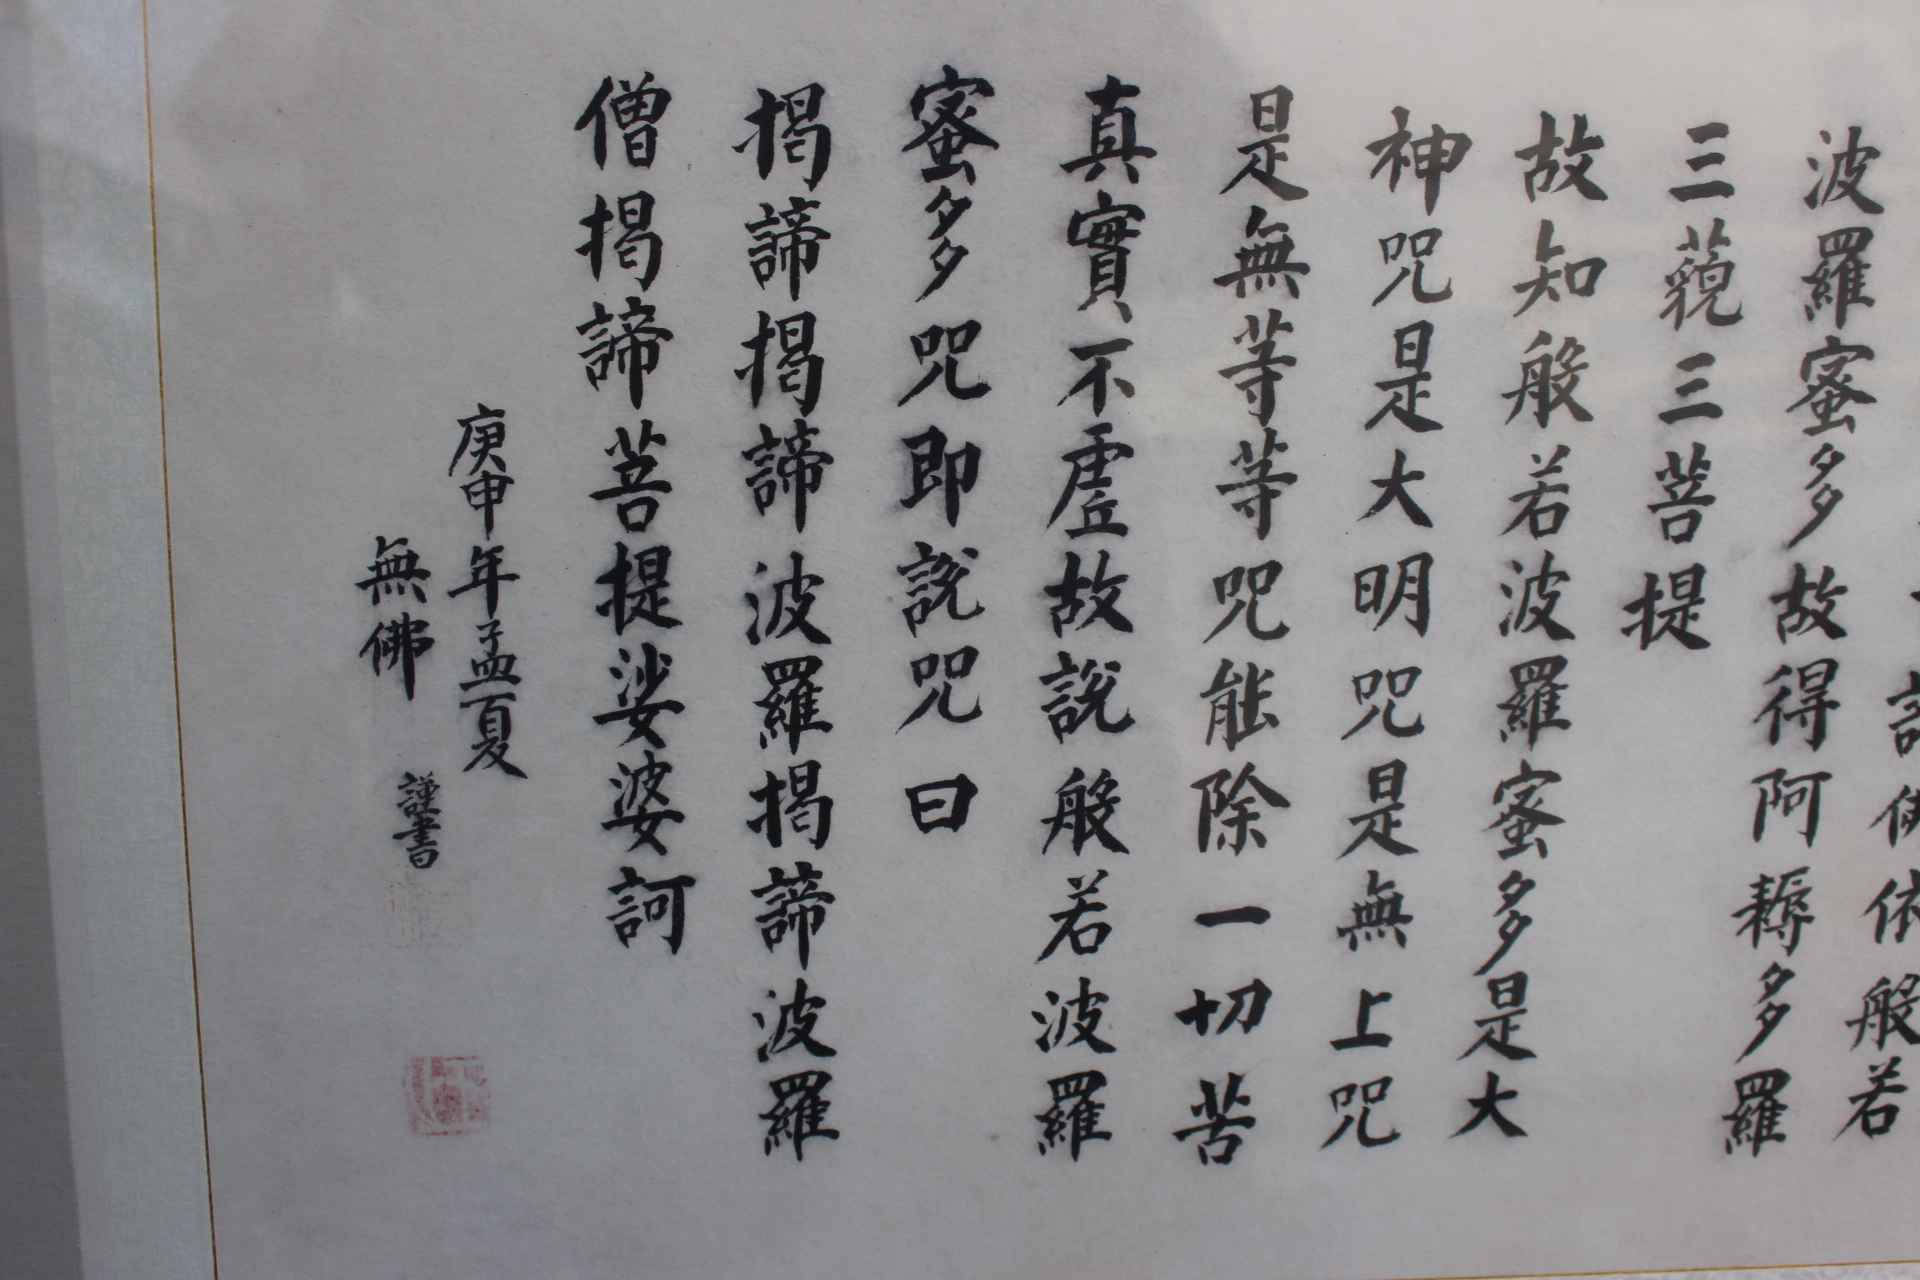 依般若
波羅蜜多故得阿耨多羅
三藐三菩提
故知般若波羅蜜多是大
神咒是大明咒是無上咒
是無等等咒能除一切苦
真實不虗故說般若波羅
蜜多咒即說咒曰
揭諦揭諦波羅揭諦波羅
僧揭諦菩提娑婆訶
庚申年孟夏
無佛 謹書